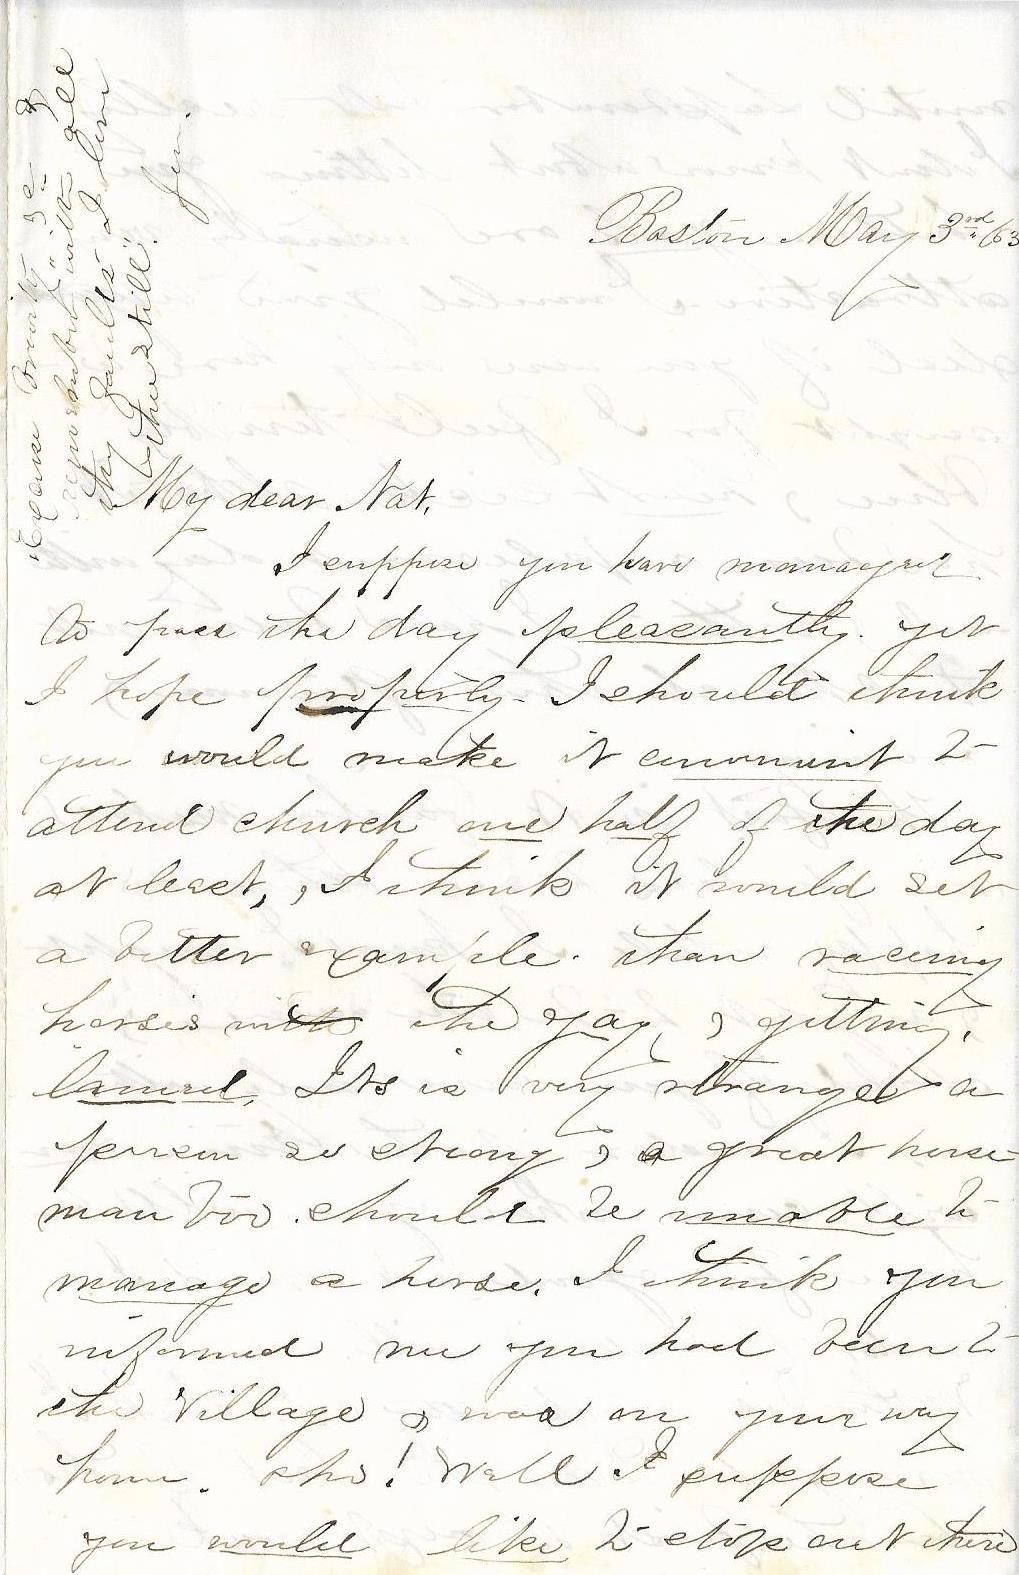 Boston May 3rd /63
My dear Nat.
I suppose you have managed
to pass the day pleasantly. yet
I hope properly - I should think
you would make it convenient to
attend church one half of the day
at least, , I think it would set
a better example. than raceing
horses with the gay, & getting,
lamed. Its is very strange a
person so strong, & a great horse-
man too. should be unable to
manage a horse. I think you
informed me you had been to
the Village & was on your way
home. oho! Well I suppose
you would like to stop out there
Excuse brevity &c &
remember "with all
thy faults I love
thee still."
Jen.